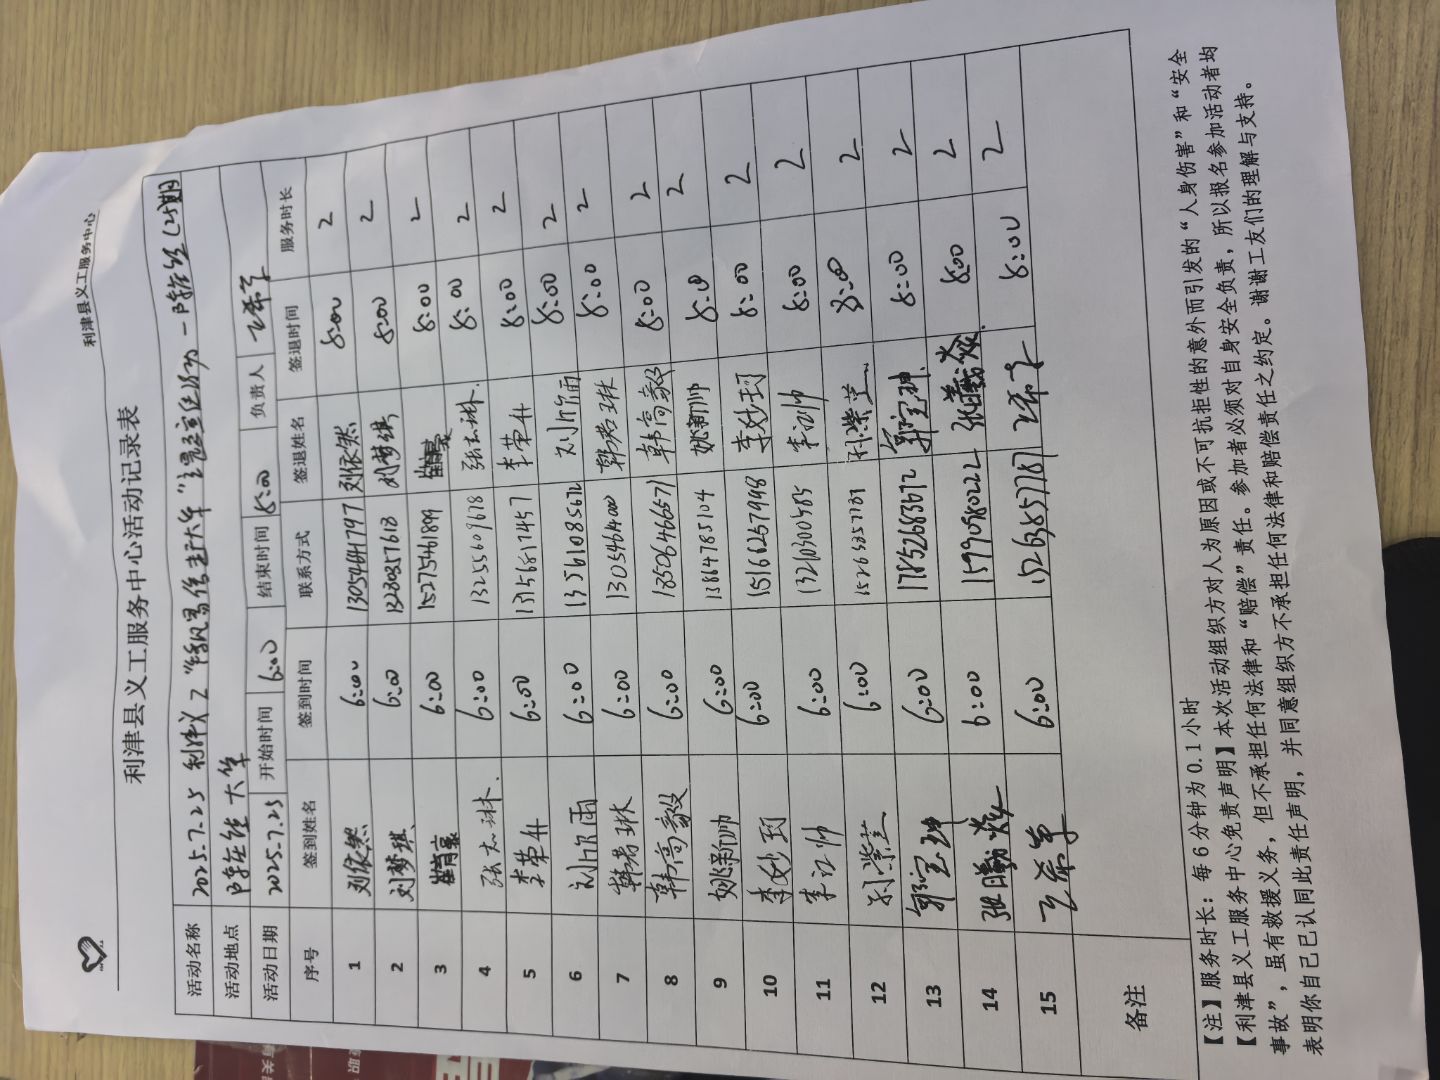 利津县义工服务中心
利津县义工服务中心活动记录表
活动名称 2025.7.25 利津义工 (25期)
活动地点 陈庄 大华
活动日期 2025.7.25 开始时间 6:00 结束时间 8:00 负责人 王希军
序号 签到姓名 签到时间 联系方式 签退姓名 签退时间 服务时长
1 刘依然 6:00 13054641797 刘依然 8:00 2
2 刘梦琪 6:00 13280357618 刘梦琪 8:00 2
3 6:00 15275461899 8:00 2
4 张志琳 6:00 13255609678 张志琳 8:00 2
5 李荣升 6:00 13156817457 李荣升 8:00 2
6 刘尔雨 6:00 13561085672 刘尔雨 8:00 2
7 韩若琳 6:00 13054614000 韩若琳 8:00 2
8 韩高毅 6:00 13506466571 韩高毅 8:00 2
9 姚新帅 6:00 13864785104 姚新帅 8:00 2
10 李妙珂 6:00 15166257498 李妙珂 8:00 2
11 李江帅 6:00 13210300585 李江帅 8:00 2
12 孙紫芸 6:00 15263857787 孙紫芸 8:00 2
13 郭宝珅 6:00 17852683672 郭宝珅 8:00 2
14 张曦焱 6:00 15990598022 张曦焱 8:00 2
15 王希军 6:00 15263857787 王希军 8:00 2
备注
【注】服务时长：每6分钟为0.1小时
【利津县义工服务中心免责声明】本次活动组织方对人为原因或不可抗拒性的意外而引发的“人身伤害”和“安全
事故”，虽有救援义务，但不承担任何法律和“赔偿”责任。参加者必须对自身安全负责，所以报名参加活动者均
表明你自己已认同此责任声明，并同意组织方不承担任何法律和赔偿责任之约定。谢谢工友们的理解与支持。